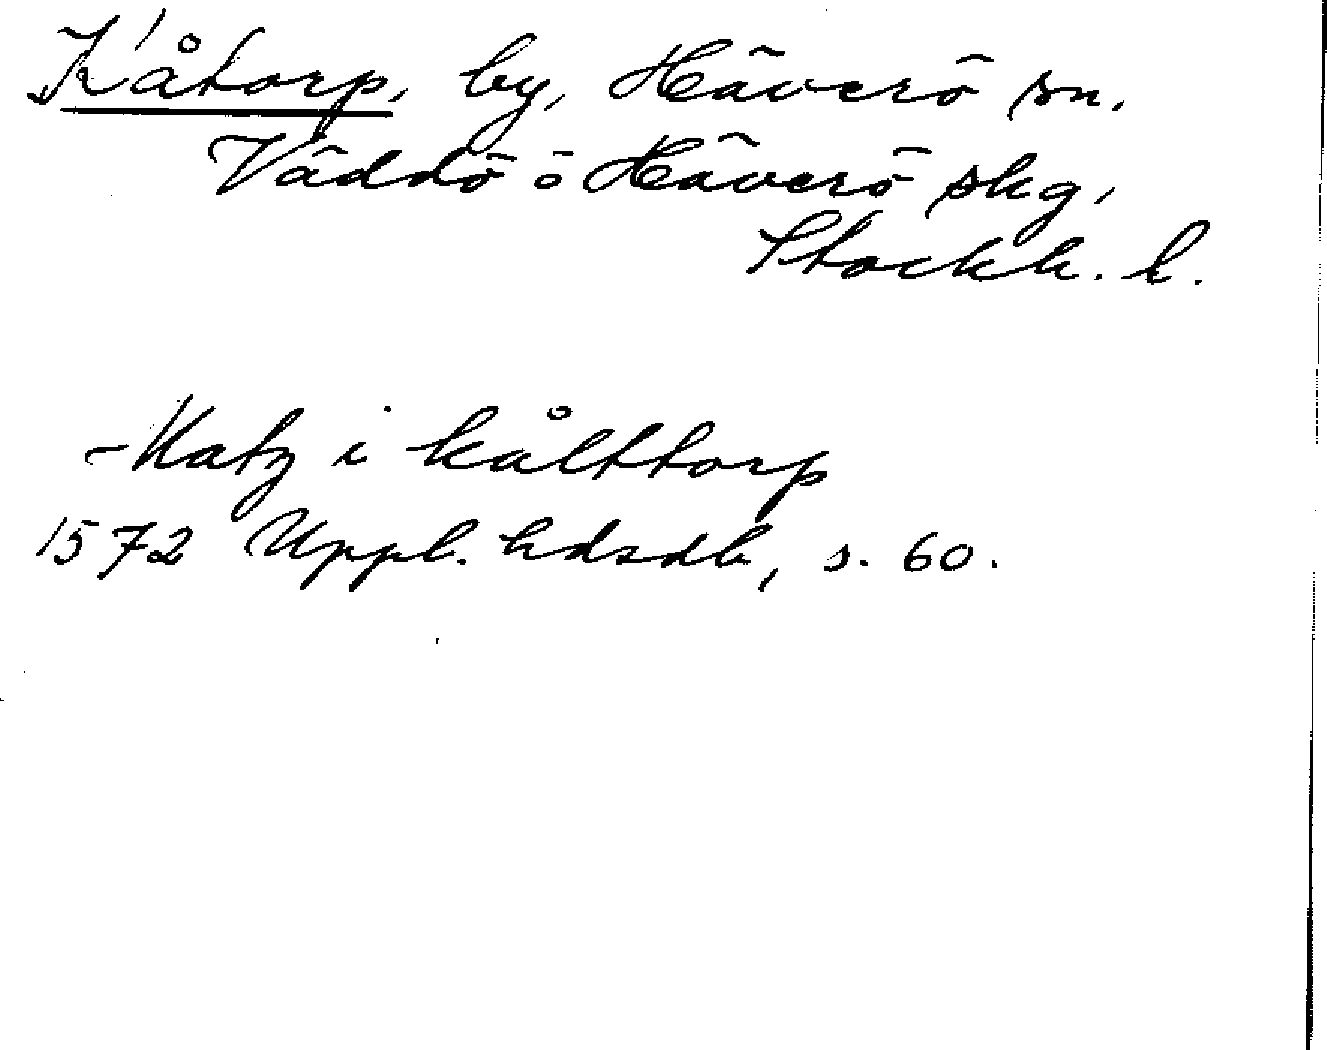 Kåtorp, by, Häverö sn.
Väddö o Häverö skg,
Stockh. l.
-Matz i kålttorp
1572 Uppl. hdsdb, s. 60.